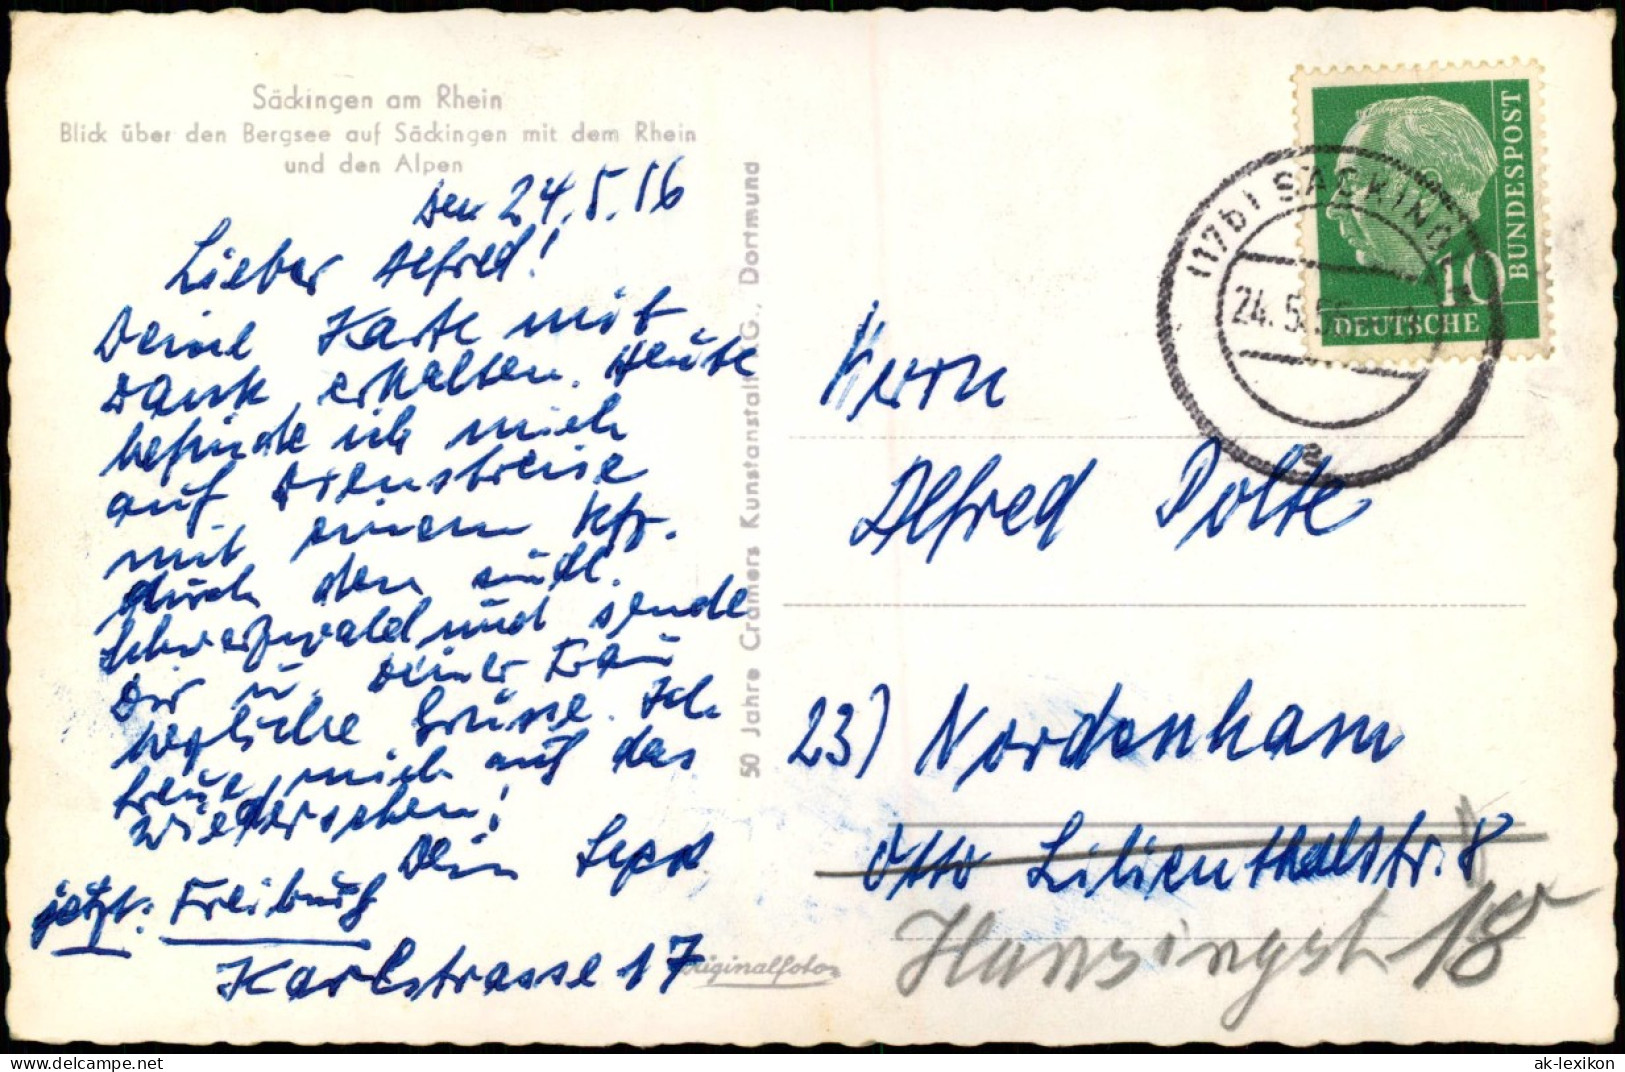 Säckingen am Rhein
Blick über den Bergsee auf Säckingen mit dem Rhein
und den Alpen
den 24.5.56
Lieber Alfred!
Deine Karte mit
Dank erhalten. Heute
befinde ich mich
auf Dienstreise
mit einem Kfz.
durch den südl.
Schwarzwald und sende
Dir u. Deiner Frau
herzliche Grüsse. Ich
freue mich auf das
Wiedersehen!
Dein Sepp
jetzt: Freiburg
Karlstrasse 17
50 Jahre Cramers Kunstanstalt KG., Dortmund
Originalfoto
BUNDESPOST
10
DEUTSCHE
(17b) SÄCKINGEN
24.5.56
a
Herrn
Alfred Polte
23) Nordenham
Otto Lilienthalstr. 8
Hansingstr 18
ak-lexikon